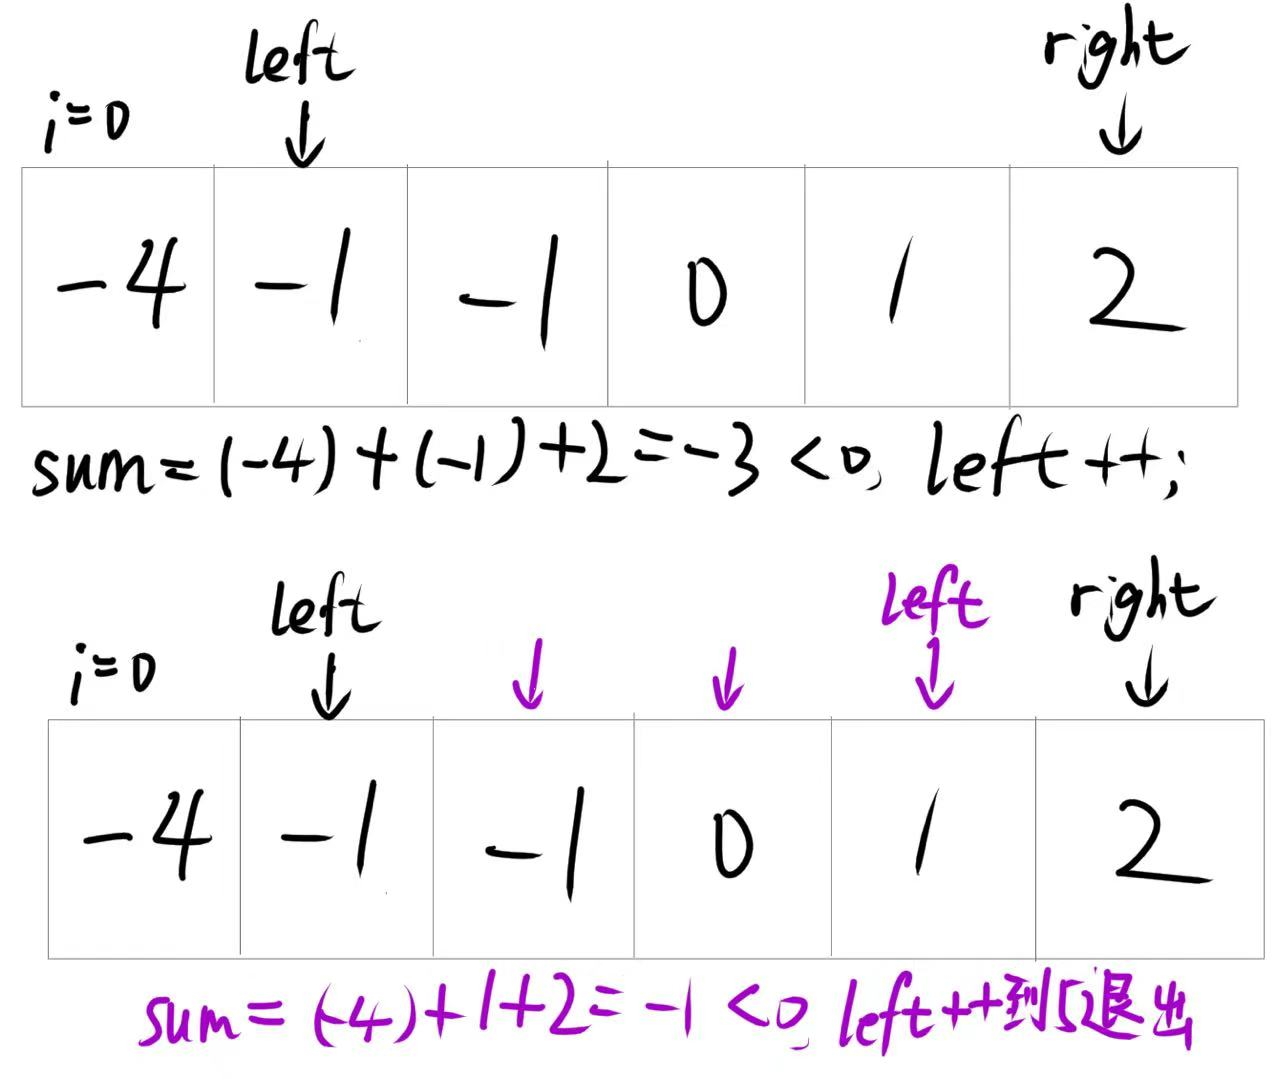 left right
i=0
-4 -1 -1 0 1 2
sum=(-4)+(-1)+2=-3<0, left++;
left left right
i=0
-4 -1 -1 0 1 2
sum=(-4)+1+2=-1<0, left++到5退出